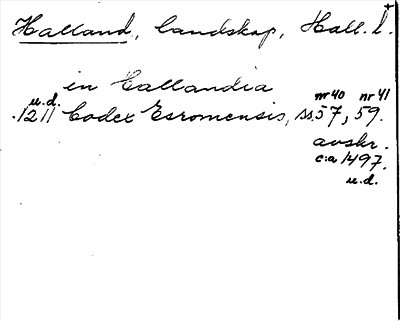 Halland, landskap, Hall. l.
in Hallandia
u.d. nr 40 nr 41
1211 Codex Esromensis, ss. 57, 59.
avskr.
c:a 1497.
u.d.